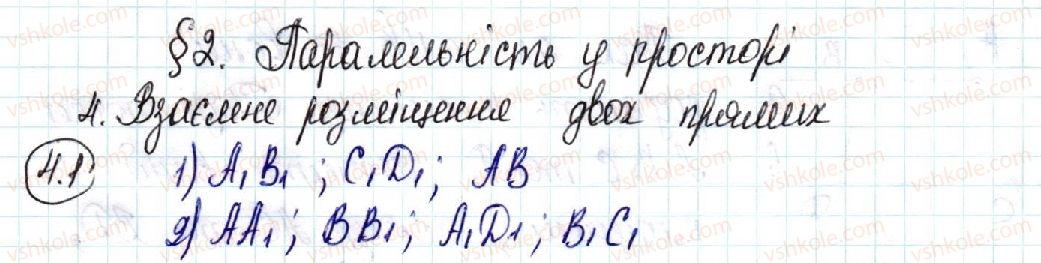 §2. Паралельність у просторі
4. Взаємне розміщення двох прямих
4.1 1) A₁B₁ ; C₁D₁ ; AB
2) AA₁ ; BB₁ ; A₁D₁ ; B₁C₁